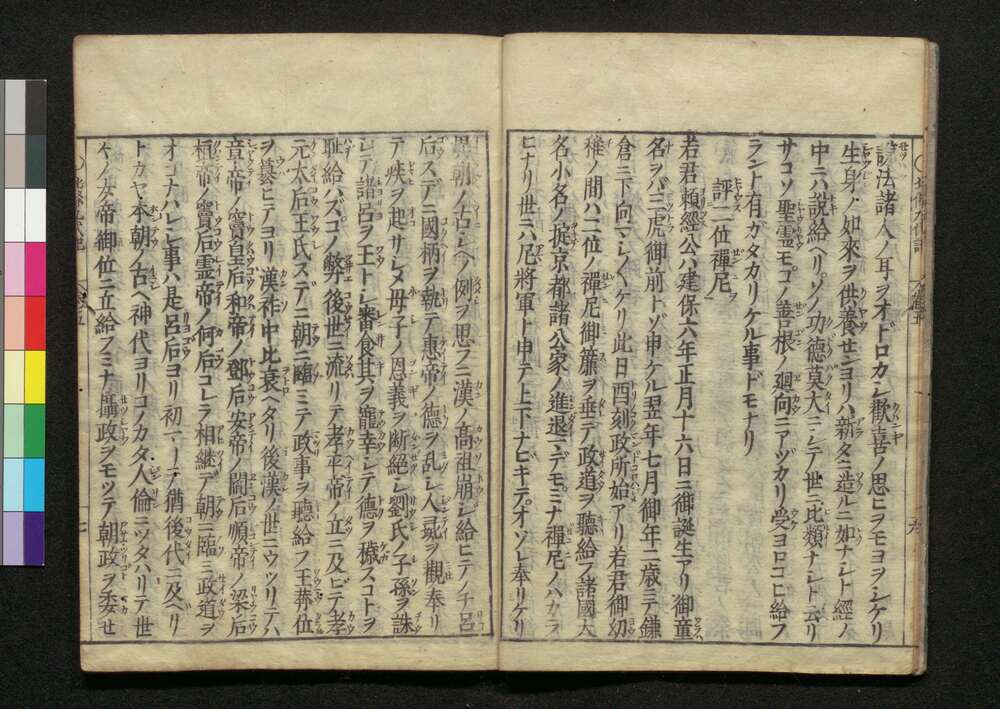 説法諸人ノ耳ヲオドロカシ歡喜ノ思ヒヲモヨヲシケリ
生身ノ如來ヲ供養セシヨリハ新タニ造ルニ如ナシト經ノ
中ニハ説給ヘリソノ功德莫大ニシテ世ニ比類ナシトニ云リ
サコソ聖霊モコノ善根ノ廻向ニアヅカリ受ヨロコビ給フ
ラント有ガタカリケル事ドモナリ
評二位禪尼ヲ
若君頼經公ハ建保六年正月十六日ニ御誕生アリ御童
名ヲバ三虎御前トゾ申ケル翌年七月御年二歳ニテ鎌
倉ニ下向マシ〱ケリ此日酉刻政所始アリ若君御幼
稚ノ間ハ二位ノ禪尼御簾ヲ垂テ政道ヲ聽給フ諸國大
名小名ノ掟京都諸公家ノ進退マデモミナ禪尼ノハカラ
ヒナリ世ニハ尼將軍ト申テ上下ナビキテオソレ奉リケリ
異朝ノ古シヘ例ヲ思フニ漢ノ高祖崩シ給ヒテノチ呂
后スデニ國柄ヲ執テ惠帝ノ德ヲ乱シ人彘ヲ觀奉リ
テ疾ヲ起サシメ母子ノ恩義ヲ断絶シ劉氏ノ子孫ヲ誅
シテ諸呂ヲ王トシ審食其ヲ寵幸シテ德ヲ穢スコトヲ
耻給ハズコノ弊後世ニ流リテ孝平帝ノ立ニ及ビテ孝
元太后王氏スデニ朝ニ臨ミテ政事ヲ聽給フ王莽位
ヲ簒ヒテヨリ漢祚中比衰ヘタリ後漢ノ世ニウツリテハ
章帝ノ竇皇后和帝ノ鄧后安帝ノ閻后順帝ノ梁后
桓帝ノ竇后霊帝ノ何后コレラ相継テ朝ニ臨ミ政道ヲ
オコナハレシ事ハ是呂后ヨリ初マーテ猶後代ニ及ヘリ
トカヤ本朝ノ古ヘ神代ヨリコノカタ人倫ニツタハリテ世
々ノ女帝御位ニ立給フミナ攝政ヲモツテ朝政ヲ委セ